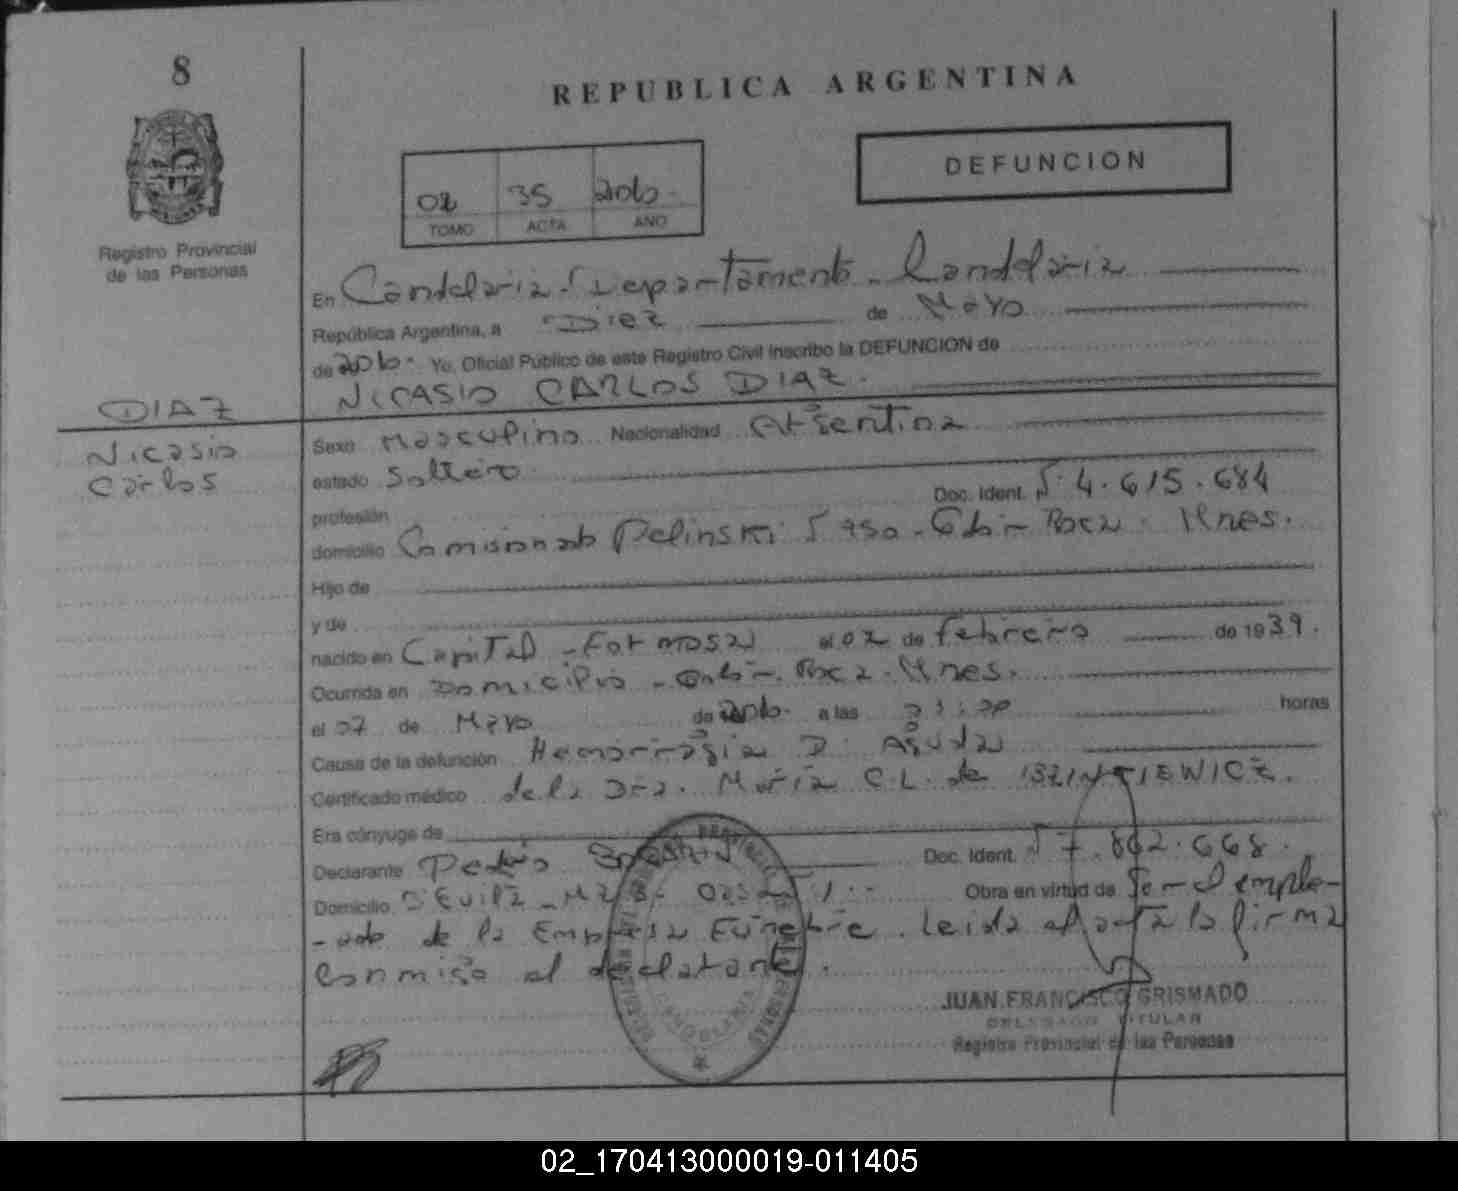 8
REPUBLICA ARGENTINA
DEFUNCION
02 35
TOMO ACTA AÑO
Registro Provincial
de las Personas
En Candelaria - Departamento - Candelaria
República Argentina, a Diez de Mayo
de Yo, Oficial Público de este Registro Civil inscribo la DEFUNCION de
NICASIO CARLOS DIAZ.
DIAZ
Nicasio
Carlos
Sexo Masculino Nacionalidad Argentina
estado Soltero
profesión Doc. Ident. 4.615.684
domicilio Comisionado Pelinski Mnes.
Hijo de
y de
nacido en Capital - Formosa el 02 de febrero de 1939.
Ocurrida en Domicilio - Mnes.
el 07 de Mayo de a las horas
Causa de la defunción Hemorragia D. Aguda
Certificado médico de la Dra. María C.L. de
Era cónyuge de
Declarante Pedro Doc. Ident. 7.862.668.
Domicilio Obra en virtud de Ser el emple-
-ado de la Empresa Fúnebre. Leida el acta la firma
conmigo el declarante.
CANDELARIA
JUAN FRANCISCO GRISMADO
DELEGADO TITULAR
Registro Provincial de las Personas
02_170413000019-011405